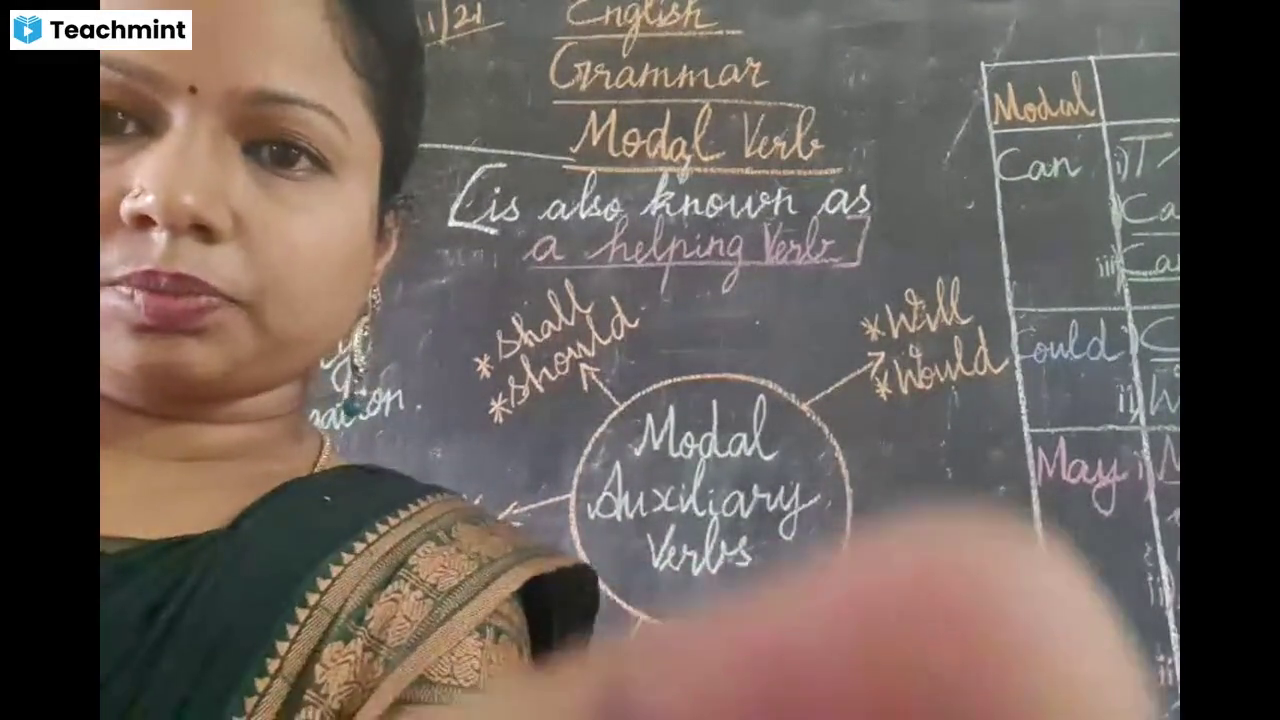 Teachmint
1/21
English
Grammar
Modal Verb
[is also known as
a helping Verb]
* shall
* should
* Will
* Would
Modal
Auxiliary
Verbs
Modal
Can
i)
iii)
Could
i)
ii)
May
i)